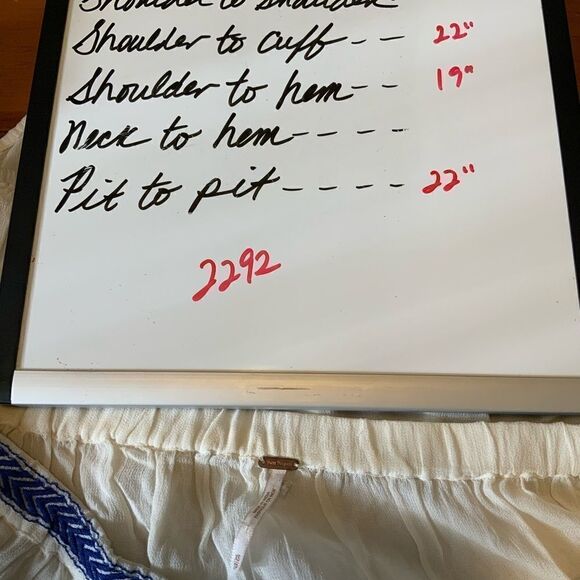 Shoulder to shoulder
Shoulder to cuff -- 22"
Shoulder to hem -- 19"
Neck to hem ----
Pit to pit ---- 22"
2292